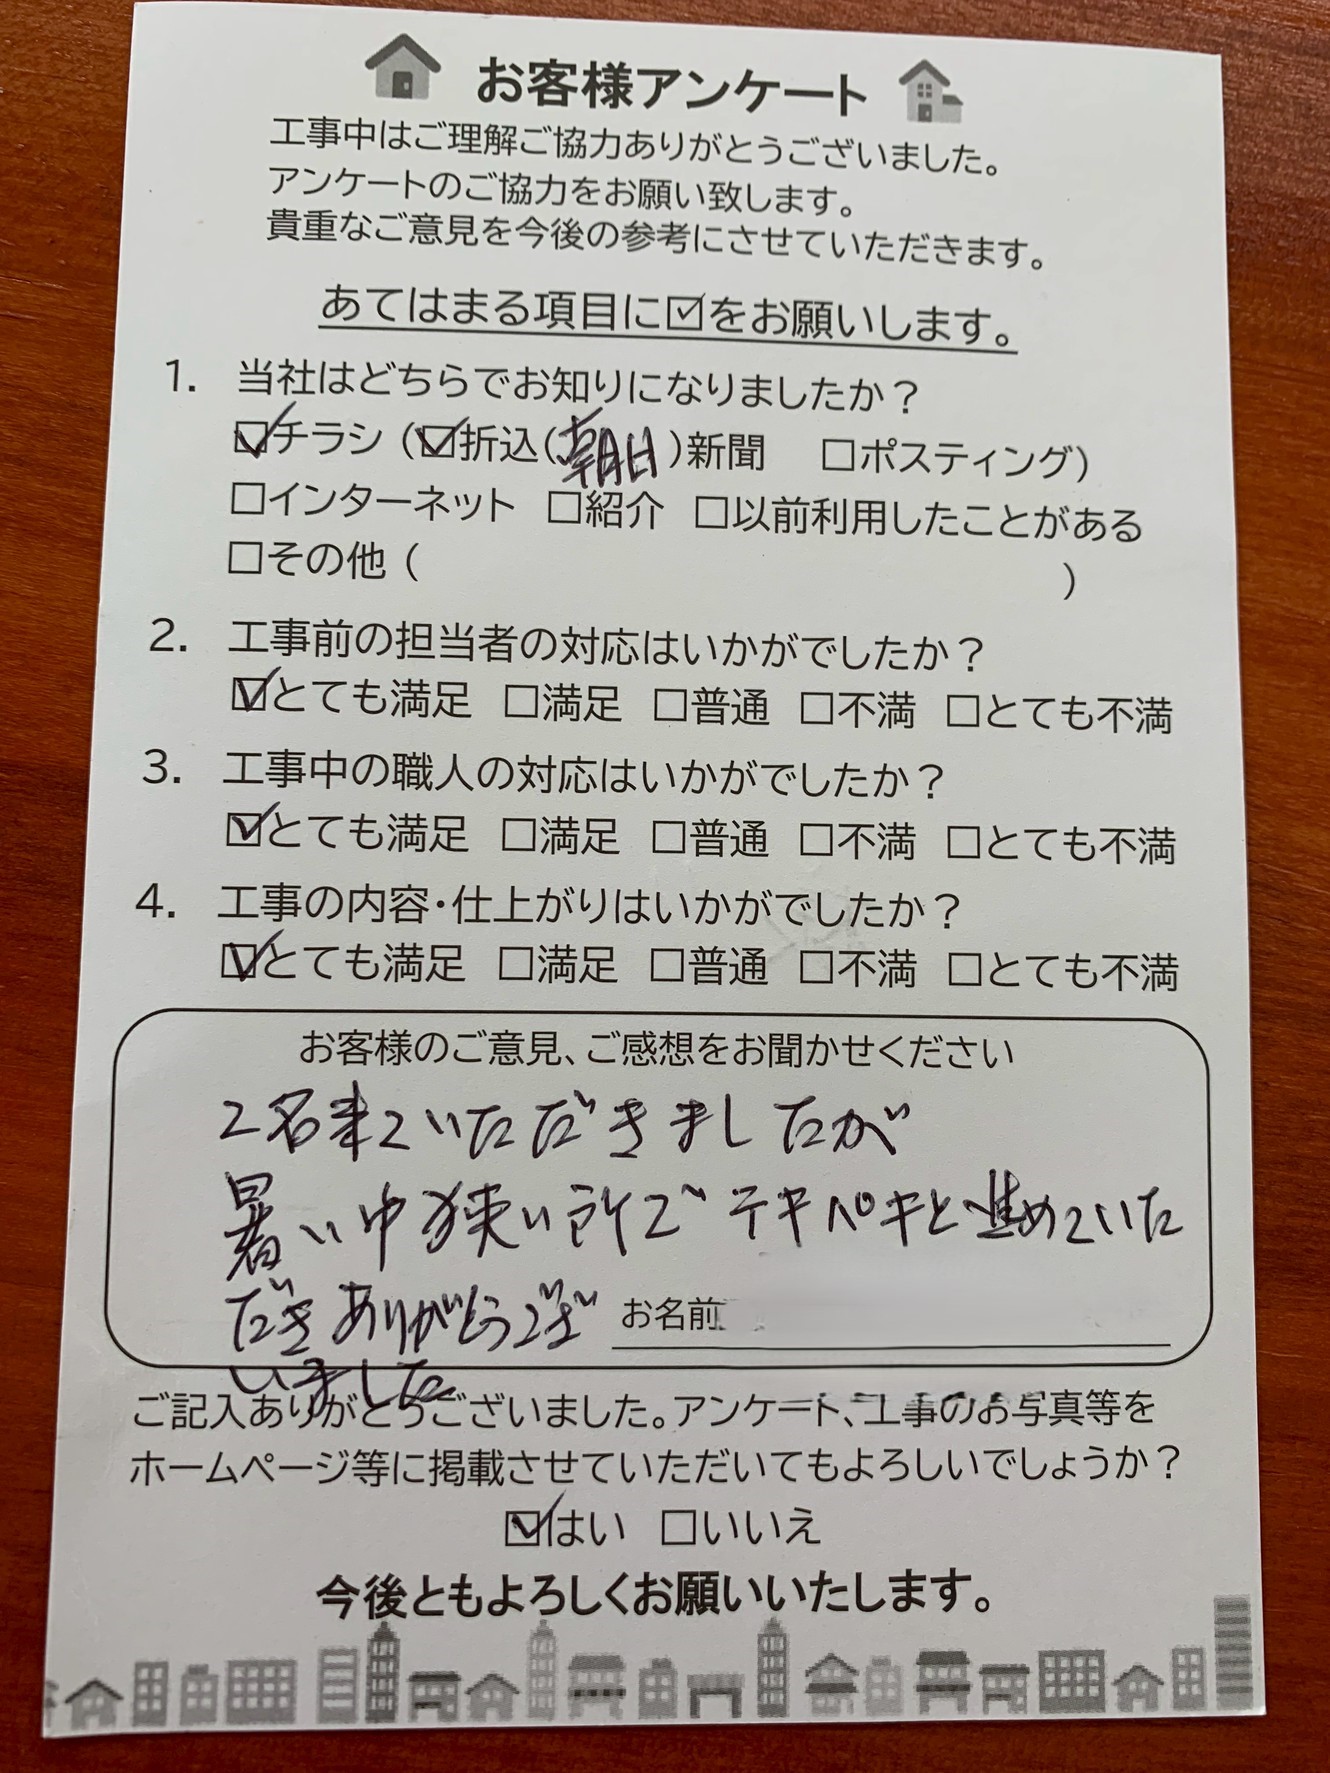 お客様アンケート
工事中はご理解ご協力ありがとうございました。
アンケートのご協力をお願い致します。
貴重なご意見を今後の参考にさせていただきます。
あてはまる項目に☑をお願いします。
1. 当社はどちらでお知りになりましたか？
☑チラシ（☑折込(朝日)新聞 □ポスティング）
□インターネット □紹介 □以前利用したことがある
□その他（ ）
2. 工事前の担当者の対応はいかがでしたか？
☑とても満足 □満足 □普通 □不満 □とても不満
3. 工事中の職人の対応はいかがでしたか？
☑とても満足 □満足 □普通 □不満 □とても不満
4. 工事の内容・仕上がりはいかがでしたか？
☑とても満足 □満足 □普通 □不満 □とても不満
お客様のご意見、ご感想をお聞かせください
2名来ていただきましたが
暑い中狭い所で テキパキと進めていた
だき ありがとうござ
いました
お名前
ご記入ありがとうございました。アンケート、工事のお写真等を
ホームページ等に掲載させていただいてもよろしいでしょうか？
☑はい □いいえ
今後ともよろしくお願いいたします。